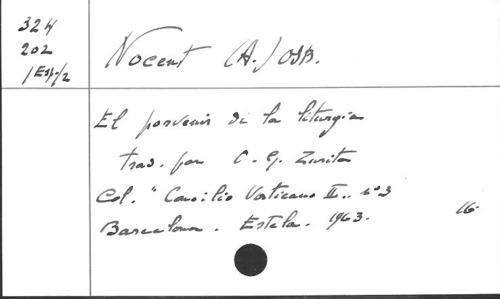 324
202
/Esp/2
Nocent (A.) OSB.
El porvenir de la liturgia
trad. por C. G. Zurita
Col. "Concilio Vaticano II", nº 3
Barcelona. Estela. 1963.
16